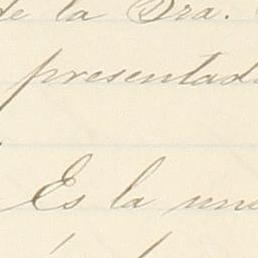 de la Dra.
presentad
Es la un